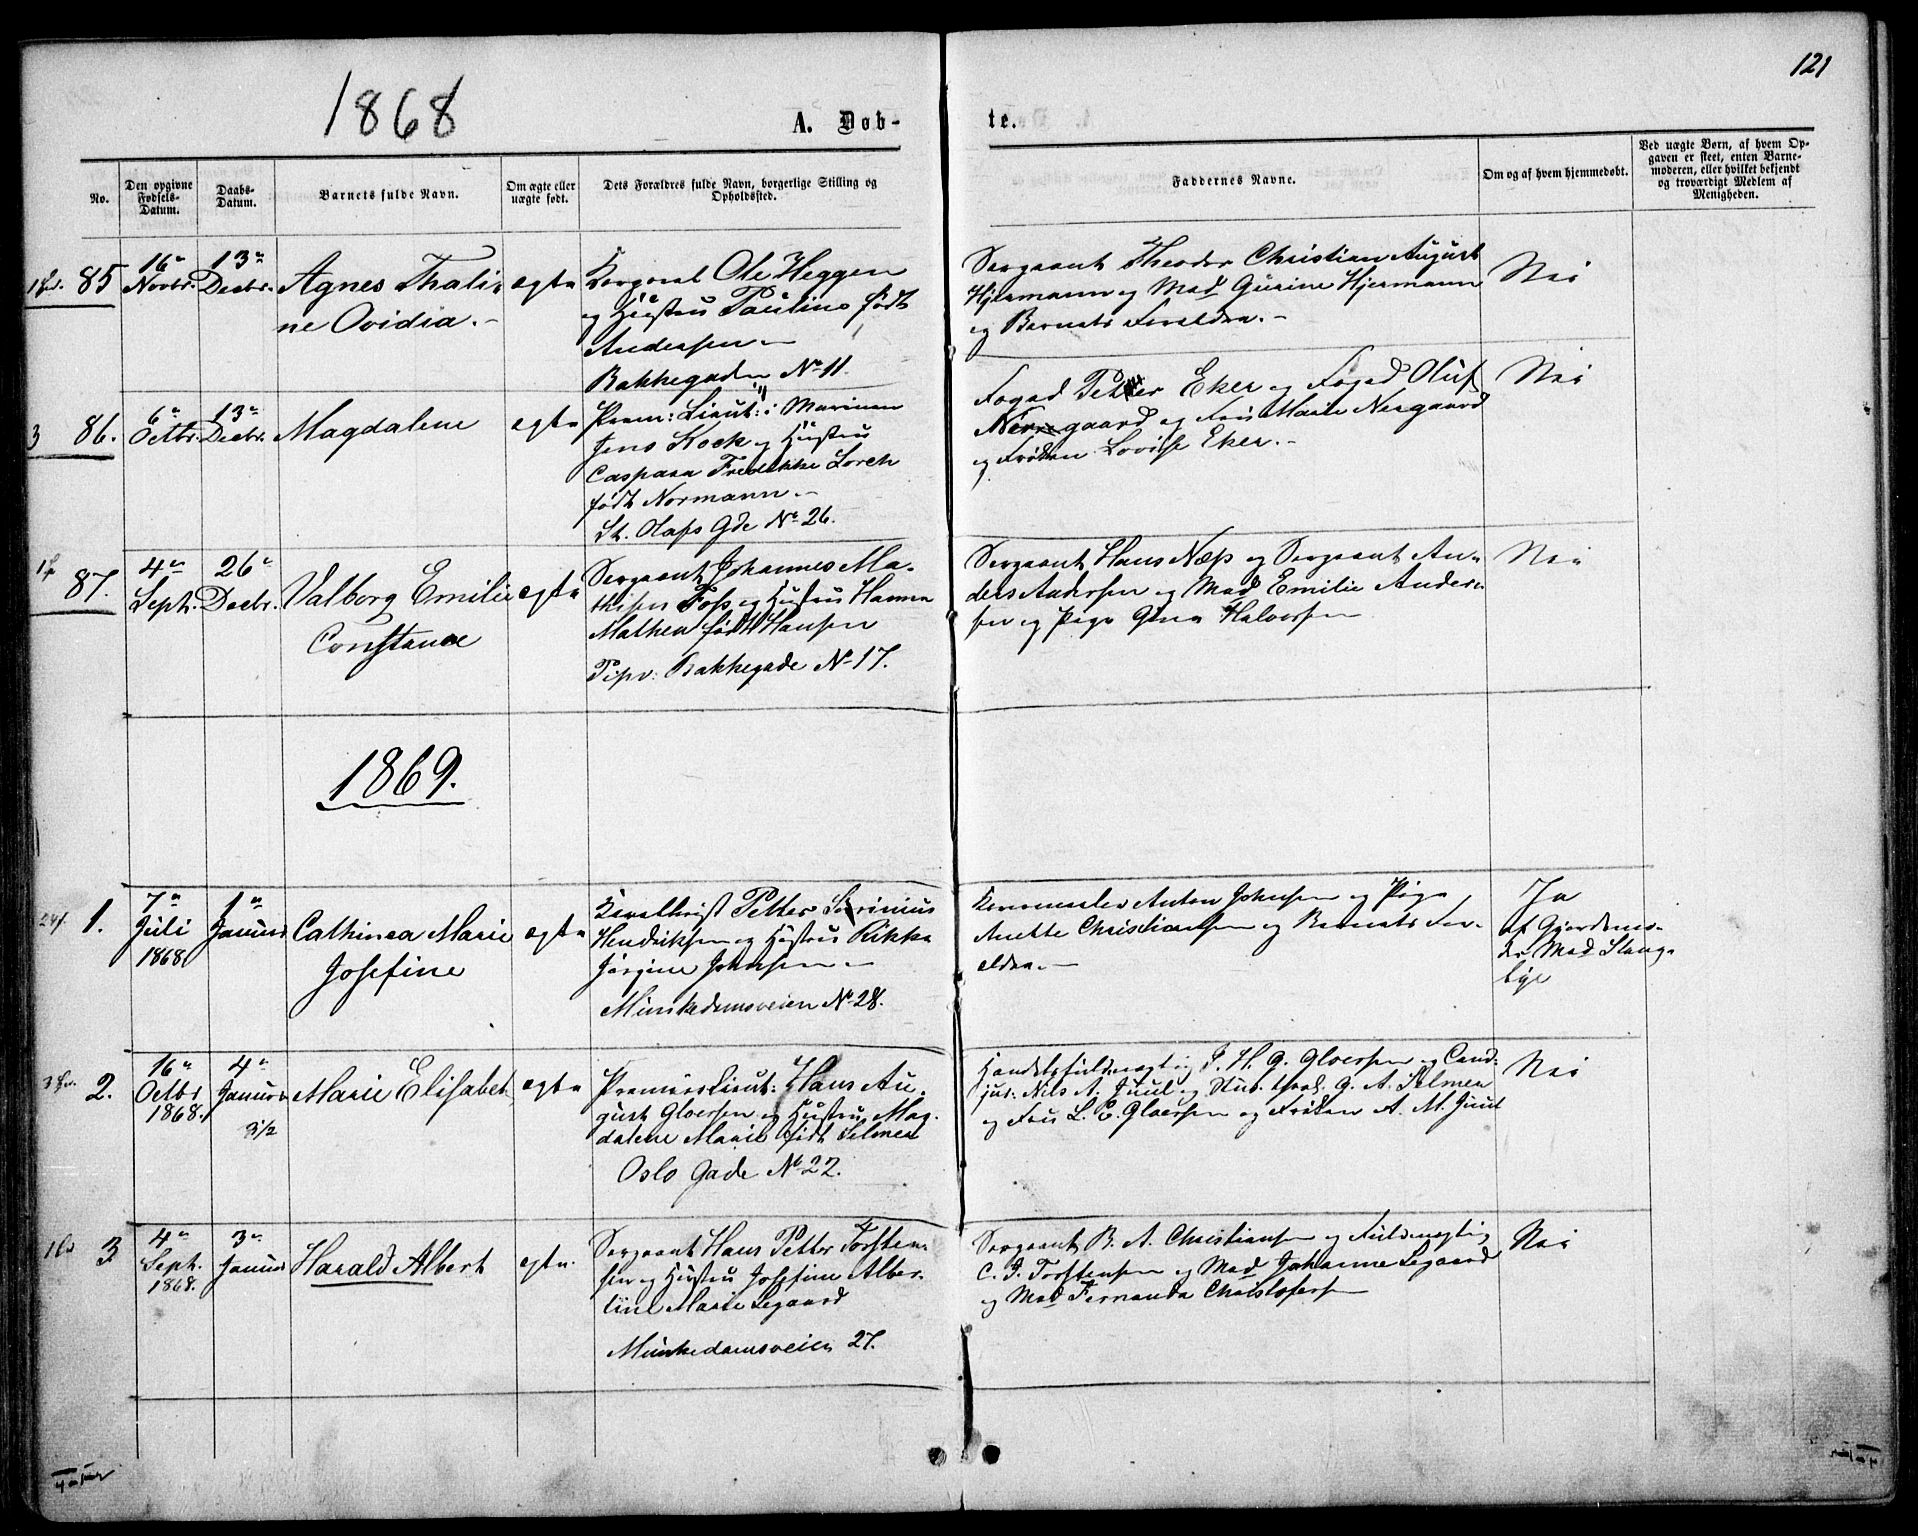 121
1868
A. Døb-
te.
No.
Den opgivne Fødsels-Datum.
Daabs-Datum.
Barnets fulde Navn.
Om ægte eller uægte født.
Dets Forældres fulde Navn, borgerlige Stilling og Opholdssted.
Faddernes Navne.
Om og af hvem hjemmedøbt.
Ved uægte Børn, af hvem Op-
gaven er skeet, enten Barne-
moderen, eller hvilket bekjendt
og troværdigt Medlem af
Menigheden.
85
16de Novbr.
13de Decbr.
Agnes Thali-
ne Ovidia.-
ægte
Korporal Ole Heggen
og Hustru Pauline født
Andersen.-
Bakkegaden No 11.
Sergeant Theodor Christian August
Hjermann og Mad Gurine Hjermann
og Barnets Forældre.-
Nei
3
86.
6te Octbr.
13de Decbr.
Magdalene
ægte
Prem: Lieut: i Marinen
Jens Kock og Hustru
Caspara Fredrikke Lorch
født Normann.-
St. Olafs Gde No 26.
Foged Petter Eker og Foged Oluf
Nergaard og Fru Marie Nergaard
og Frøken Lovise Eker.-
Nei
87.
4de Septr.
26de Decbr.
Valborg Emilie
Constance
ægte
Sergeant Johannes Ma-
thisen Foss og Hustru Hanna
Mathea født Hansen
Pipv: Bakkegade No 17.
Sergeant Hans Næss og Sergeant An-
ders Andersen og Mad Emilie Ander-
sen og Pige Gina Halvorsen
Nei
1869.
1.
7de Juli 1868
1ste Januar
Cathinca Marie
Josefine
ægte
Kavallerist Petter Severinius
Hendriksen og Hustru Rikka
Jørgine Johnsen.-
Munkedamsveien No 28.
Anton Johnsen og Pige
Anette Christiansen og Barnets For-
ældre.-
Ja
af Gjordemo-
der Mad Stang-
bye
2.
16de Octbr 1868.
4de Januar
Marie Elisabet
ægte
Premierlieut: Hans Au-
gust Gloersen og Hustru Mag-
dalene Marie født Selmer
Oslo Gade No 22.
Handelsfuldmægtig F. H. G. Gloersen og Cand:
jur: Nils A. Juul og Stud. theol. G. A. Selmer
og Fru L. E. Gloersen og Frøken A. M. Juul
Nei
3
4de Septr. 1868.
3de Januar
Harald Albert
ægte.
Sergeant Hans Petter Torsten-
sen og Hustru Josefine Alber-
tine Marie Legaard
Munkedamsveien 27.
Sergeant B. A. Christiansen og Fuldmægtig
C. J. Torstensen og Mad Johanne Legaard
og Mad Fernanda Christofersen
Nei